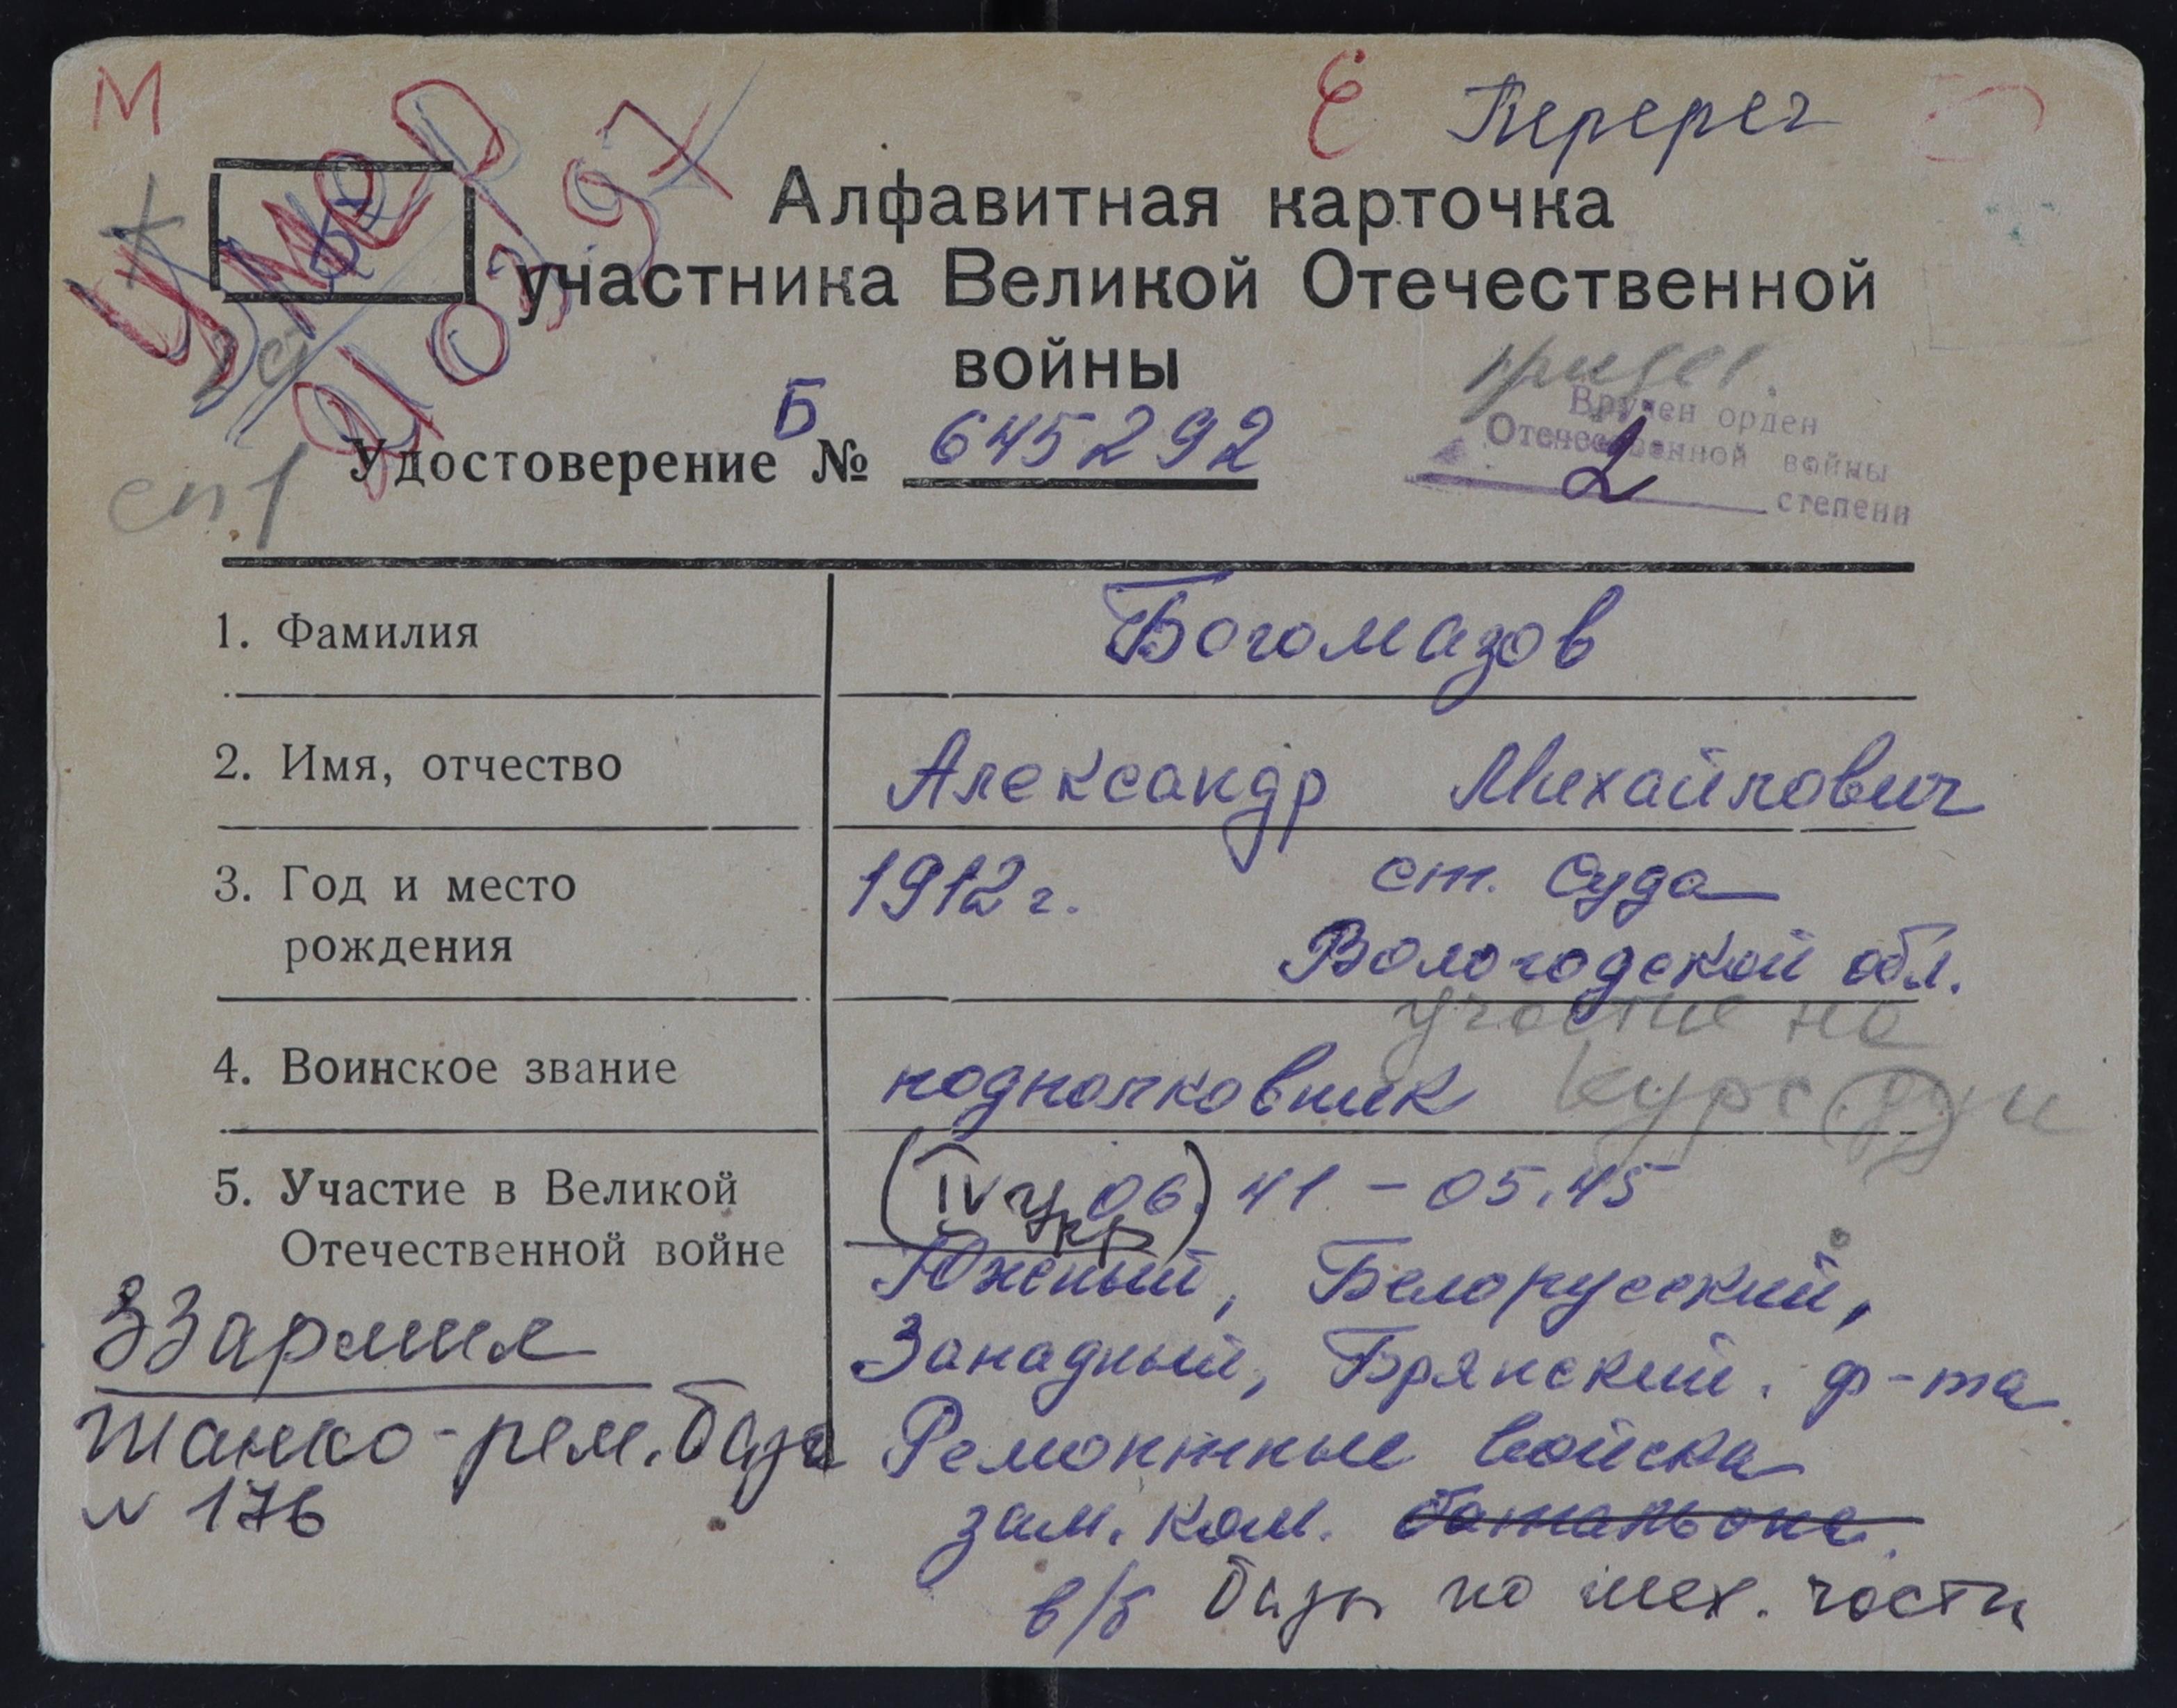 М
Е Перерег
УМЕР
Алфавитная карточка
участника Великой Отечественной
войны
Вручен орден
Отечественной войны
2 степени
Б
Удостоверение № 645292
сп. 1
1. Фамилия Богомазов
2. Имя, отчество Александр Михайлович
3. Год и место 1912 г. ст. Суда
рождения Вологодской обл.
участие на
4. Воинское звание подполковник Курс дуи
5. Участие в Великой (IV Укр) 06. 41 – 05.45
Отечественной войне Южный, Белорусский,
33 армия Западный, Брянский. ф-та
танко-рем. база Ремонтные войска
N 176 зам. ком. батальона.
в/б базы по мех. части